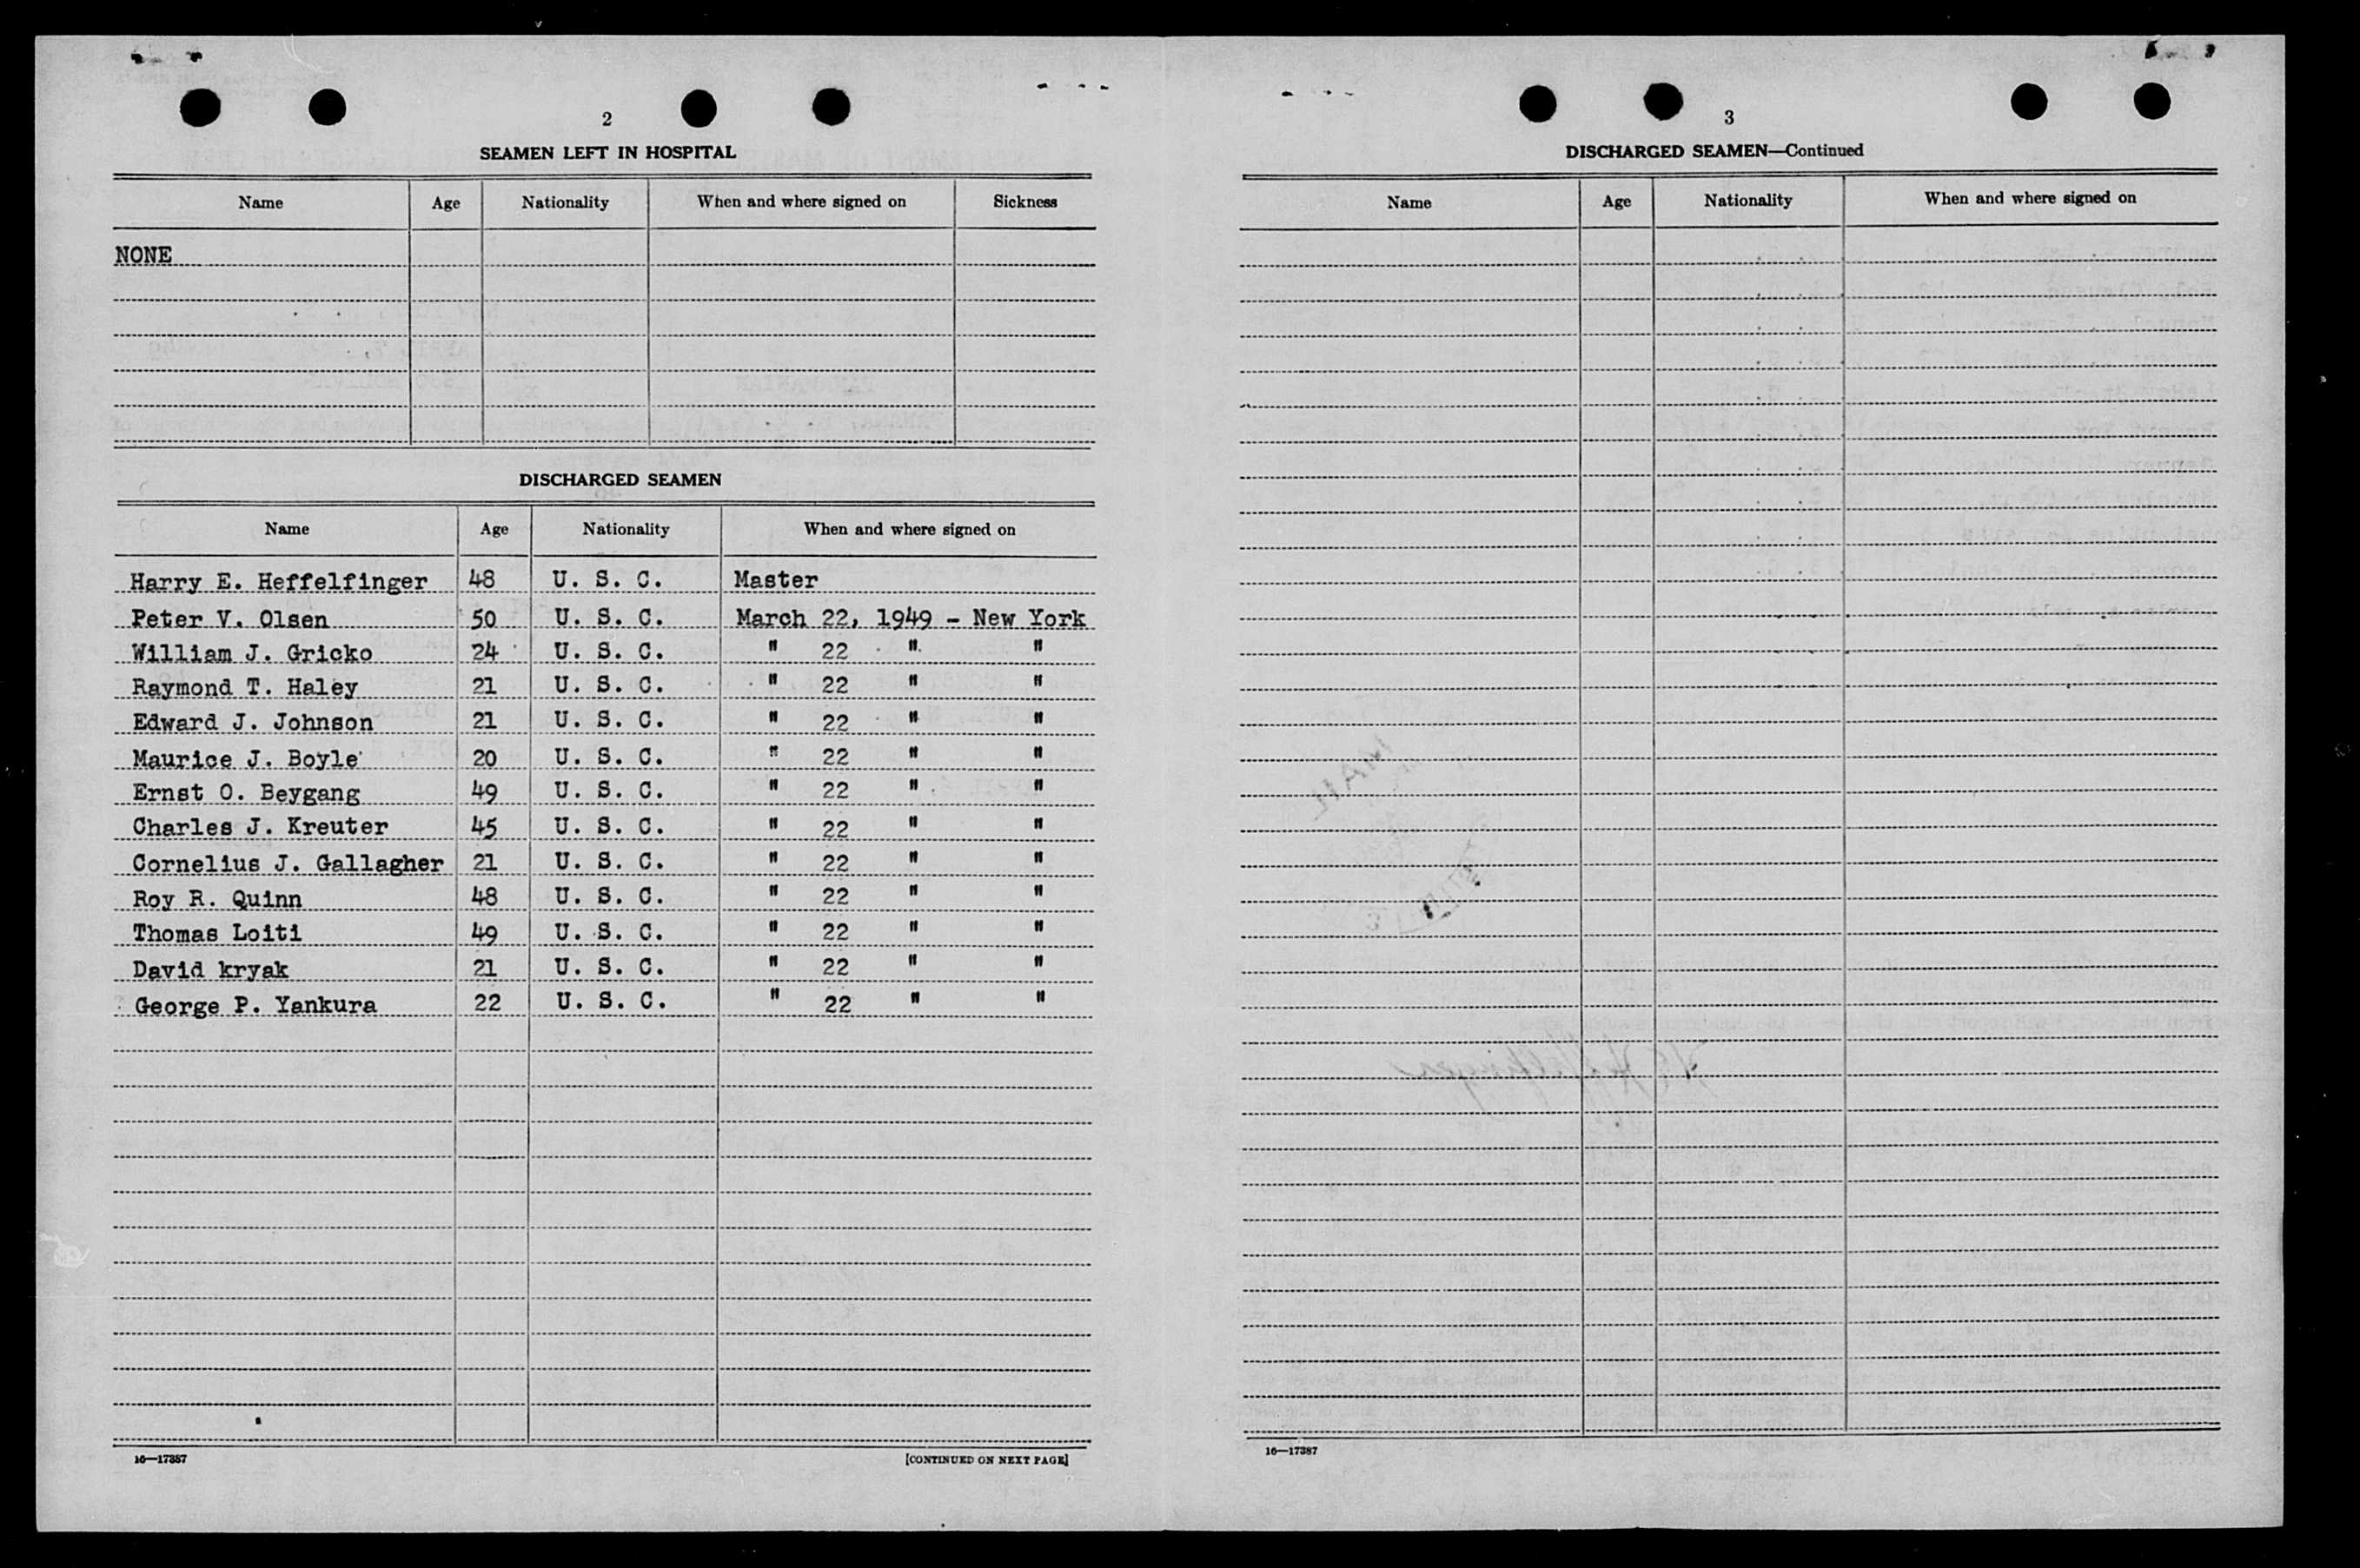 2
SEAMEN LEFT IN HOSPITAL
Name Age Nationality When and where signed on Sickness
NONE
DISCHARGED SEAMEN
Name Age Nationality When and where signed on
Harry E. Heffelfinger 48 U. S. C. Master
Peter V. Olsen 50 U. S. C. March 22, 1949 - New York
William J. Gricko 24 U. S. C. " 22 " "
Raymond T. Haley 21 U. S. C. " 22 " "
Edward J. Johnson 21 U. S. C. " 22 " "
Maurice J. Boyle 20 U. S. C. " 22 " "
Ernst O. Beygang 49 U. S. C. " 22 " "
Charles J. Kreuter 45 U. S. C. " 22 " "
Cornelius J. Gallagher 21 U. S. C. " 22 " "
Roy R. Quinn 48 U. S. C. " 22 " "
Thomas Loiti 49 U. S. C. " 22 " "
David kryak 21 U. S. C. " 22 " "
George P. Yankura 22 U. S. C. " 22 " "
16—17387 [CONTINUED ON NEXT PAGE]
3
DISCHARGED SEAMEN—Continued
Name Age Nationality When and where signed on
16—17387